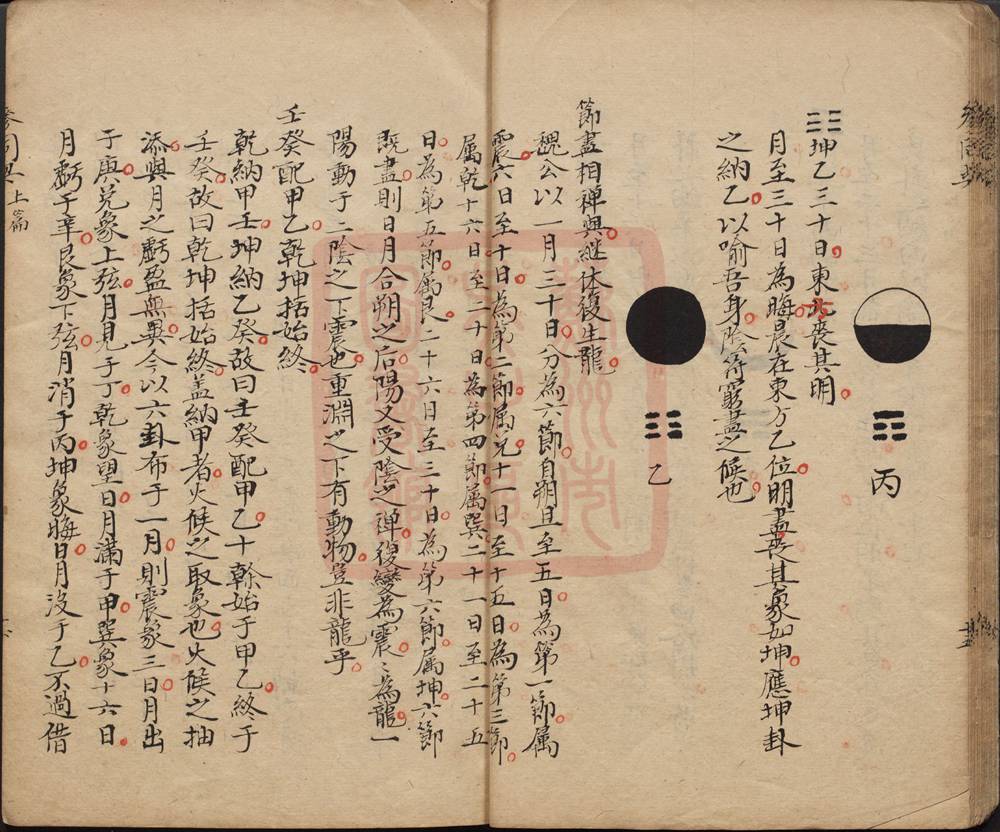 丙
☷坤乙三十日東北喪其明
月至三十日為晦晨在東方乙位明盡喪其象如坤應坤卦
之納乙以喻吾身陰符窮盡之候也
乙
節盡相禪與繼体復生龍
魏公以一月三十日分為六節自朔旦至五日為第一節属
震六日至十日為第二節属兌十一日至十五日為第三節
属乾十六日至二十日為第四節属巽二十一日至二十五
日為第五節属艮二十六日至三十日為第六節属坤六節
既盡則日月合朔之后陽又受陰之禪復變為震〻為龍一
陽動于二陰之下震也重淵之下有動物豈非龍乎
壬癸配甲乙乾坤括始終
乾納甲壬坤納乙癸故曰壬癸配甲乙十榦始于甲乙終于
壬癸故曰乾坤括始終盖納甲者火候之取象也火候之抽
添與月之虧盈無異今以六卦布于一月則震象三日月出
于庚兌象上弦月見于丁乾象望日月滿于甲巽象十六日
月虧于辛艮象下弦月消于丙坤象晦日月沒于乙不過借
參同契上篇